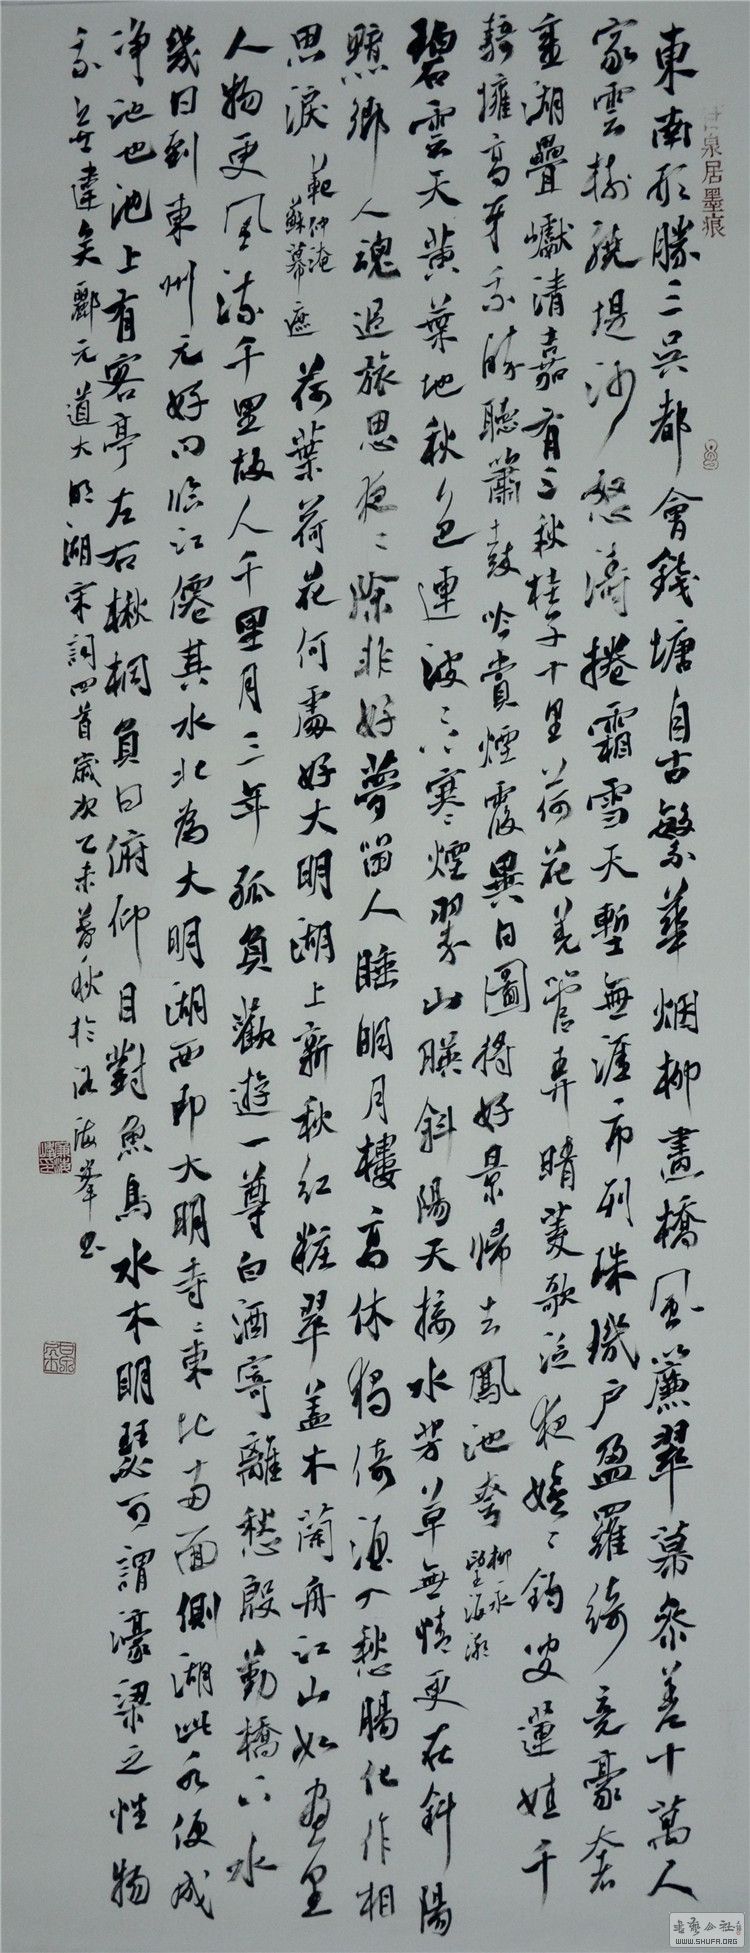 東南形勝三吳都會錢塘自古繁華烟柳畫橋風簾翠幕參差十萬人
家雲樹繞堤沙怒濤捲霜雪天塹無涯市列珠璣户盈羅綺競豪奢
重湖疊巘清嘉有三秋桂子十里荷花羌管弄晴菱歌泛夜嬉嬉釣叟蓮娃千
騎擁高牙乘醉聽簫鼓吟賞煙霞異日圖將好景歸去鳳池夸 柳永
望海潮
碧雲天黃葉地秋色連波波上寒煙翠山映斜陽天接水芳草無情更在斜陽
黯鄉人魂追旅思夜夜除非好夢留人睡明月樓高休獨倚酒入愁腸化作相
思淚 范仲淹
蘇幕遮
荷葉荷花何處好大明湖上新秋紅粧翠蓋木蘭舟江山如畫里
人物更風流千里故人千里月三年孤負歡遊一尊白酒寄離愁殷勤橋下水
幾日到東州元好問臨江僊其水北為大明湖西即大明寺寺東北兩面側湖此水便成
净池也池上有客亭左右楸桐負日俯仰目對魚鳥水木明瑟可謂濠梁之性物
我無違矣酈元道大明湖宋詞四首歲次乙未暮秋於海峯書
泉居墨痕
書法公社
WWW.SHUFA.ORG